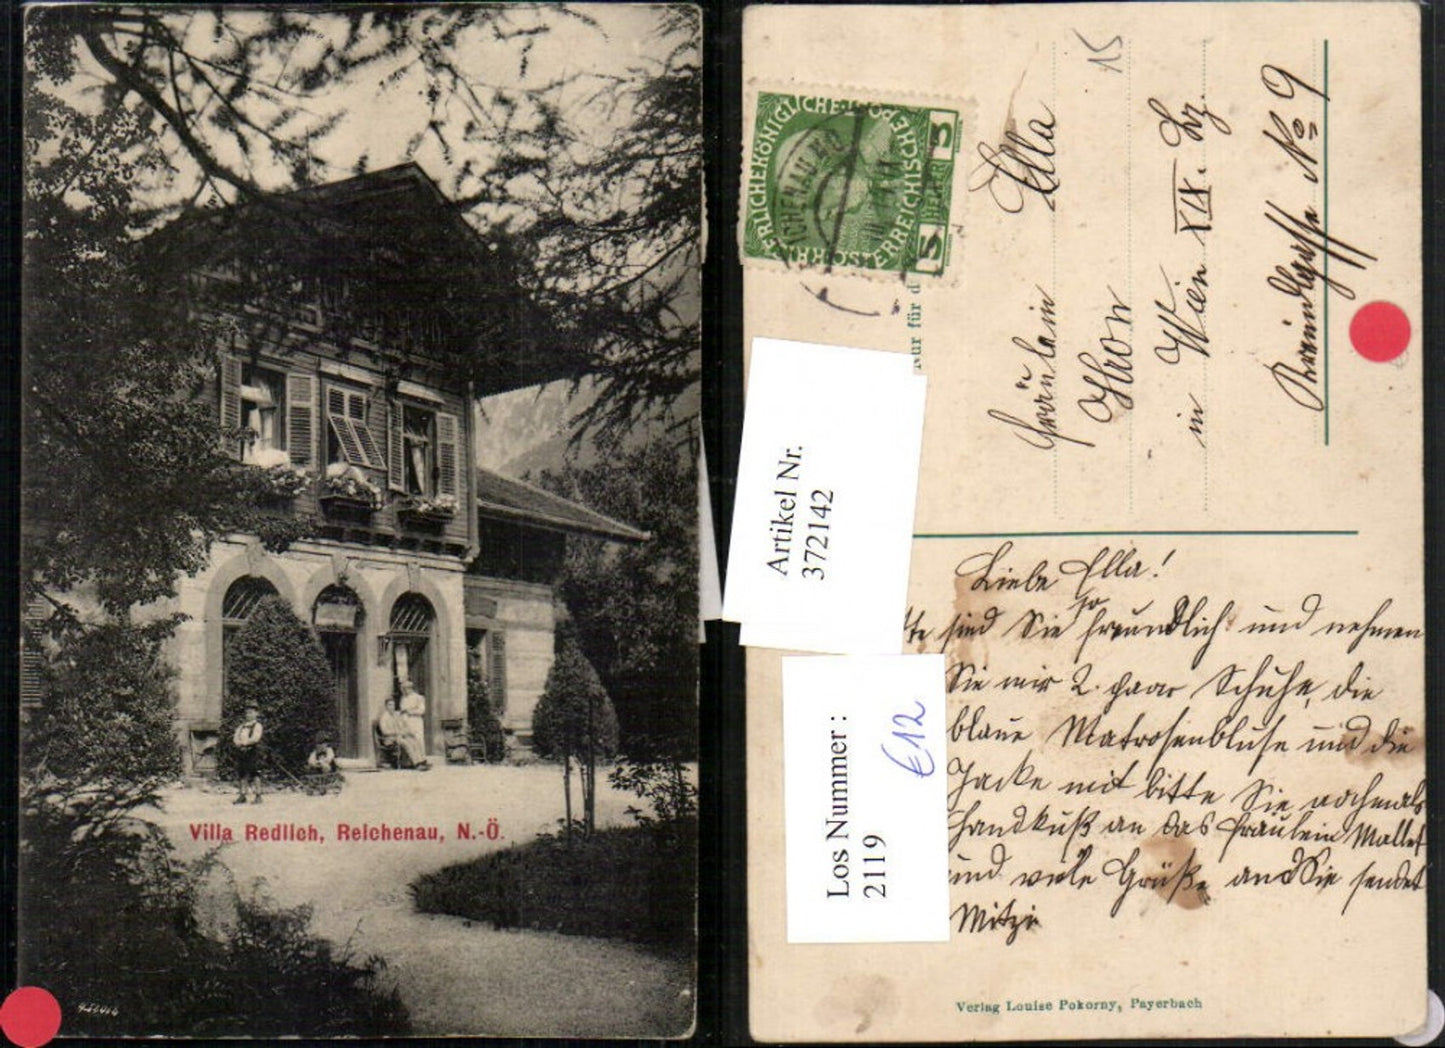 Villa Redlich, Reichenau, N.-Ö.
KAISERLICHEKÖNIGLICHE·ÖSTERREICHISCHE·POST
5 HELLER 5
REICHENAU N.Ö.
Nur für d
15
Fräulein Ella
Thron
in Wien XIX. Bz.
No 9
Artikel Nr.
372142
Los Nummer :
2119
€12
Liebe Ella!
tte sind Sie so freundlich und nehmen
Sie mir 2. paar Schuhe, die
blaue Matrosenbluse und die
Jacke mit bitte Sie nochmals
Handkuß an das Fräulein
und viele Grüße an Sie sendet
Mitzi
Verlag Louise Pokorny, Payerbach